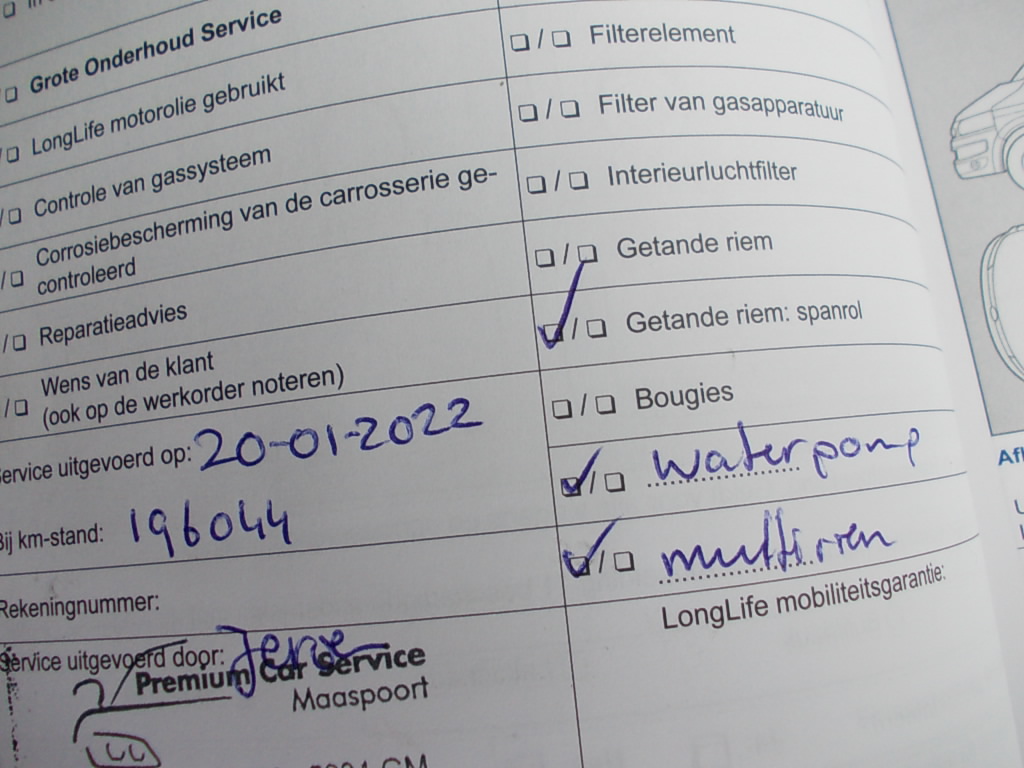 Grote Onderhoud Service
LongLife motorolie gebruikt
Controle van gassysteem
Corrosiebescherming van de carrosserie ge-
controleerd
Reparatieadvies
Wens van de klant
(ook op de werkorder noteren)
Service uitgevoerd op: 20-01-2022
Bij km-stand: 196044
Rekeningnummer:
Service uitgevoerd door:
Premium Car Service
Maaspoort
Filterelement
Filter van gasapparatuur
Interieurluchtfilter
Getande riem
Getande riem: spanrol
Bougies
waterpomp
multiriem
LongLife mobiliteitsgarantie: